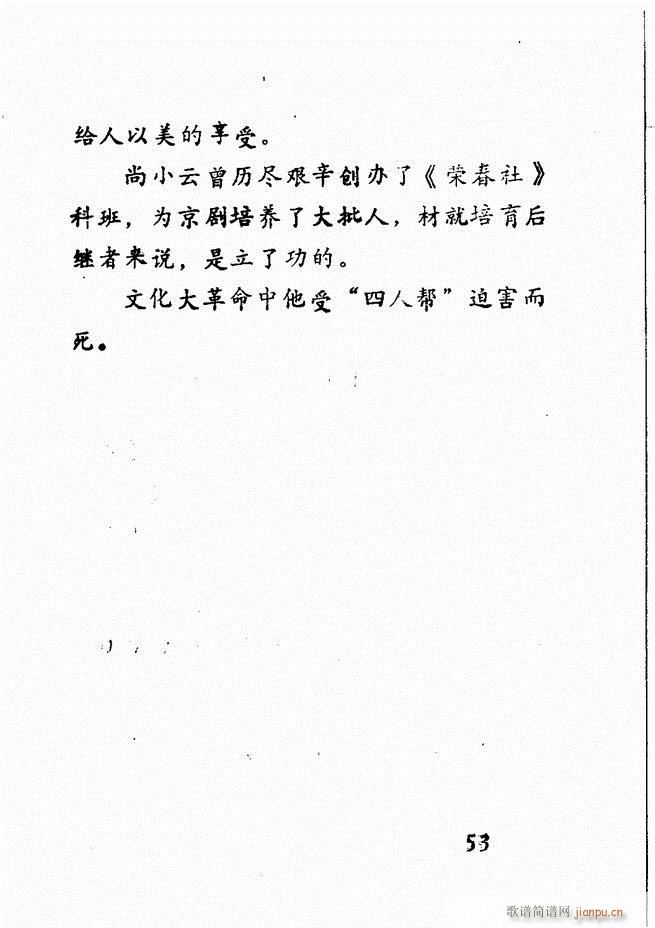 给人以美的享受。
尚小云曾历尽艰辛创办了《荣春社》
科班，为京剧培养了大批人，材就培育后
继者来说，是立了功的。
文化大革命中他受“四人帮”迫害而
死。
53
歌谱简谱网 jianpu.cn